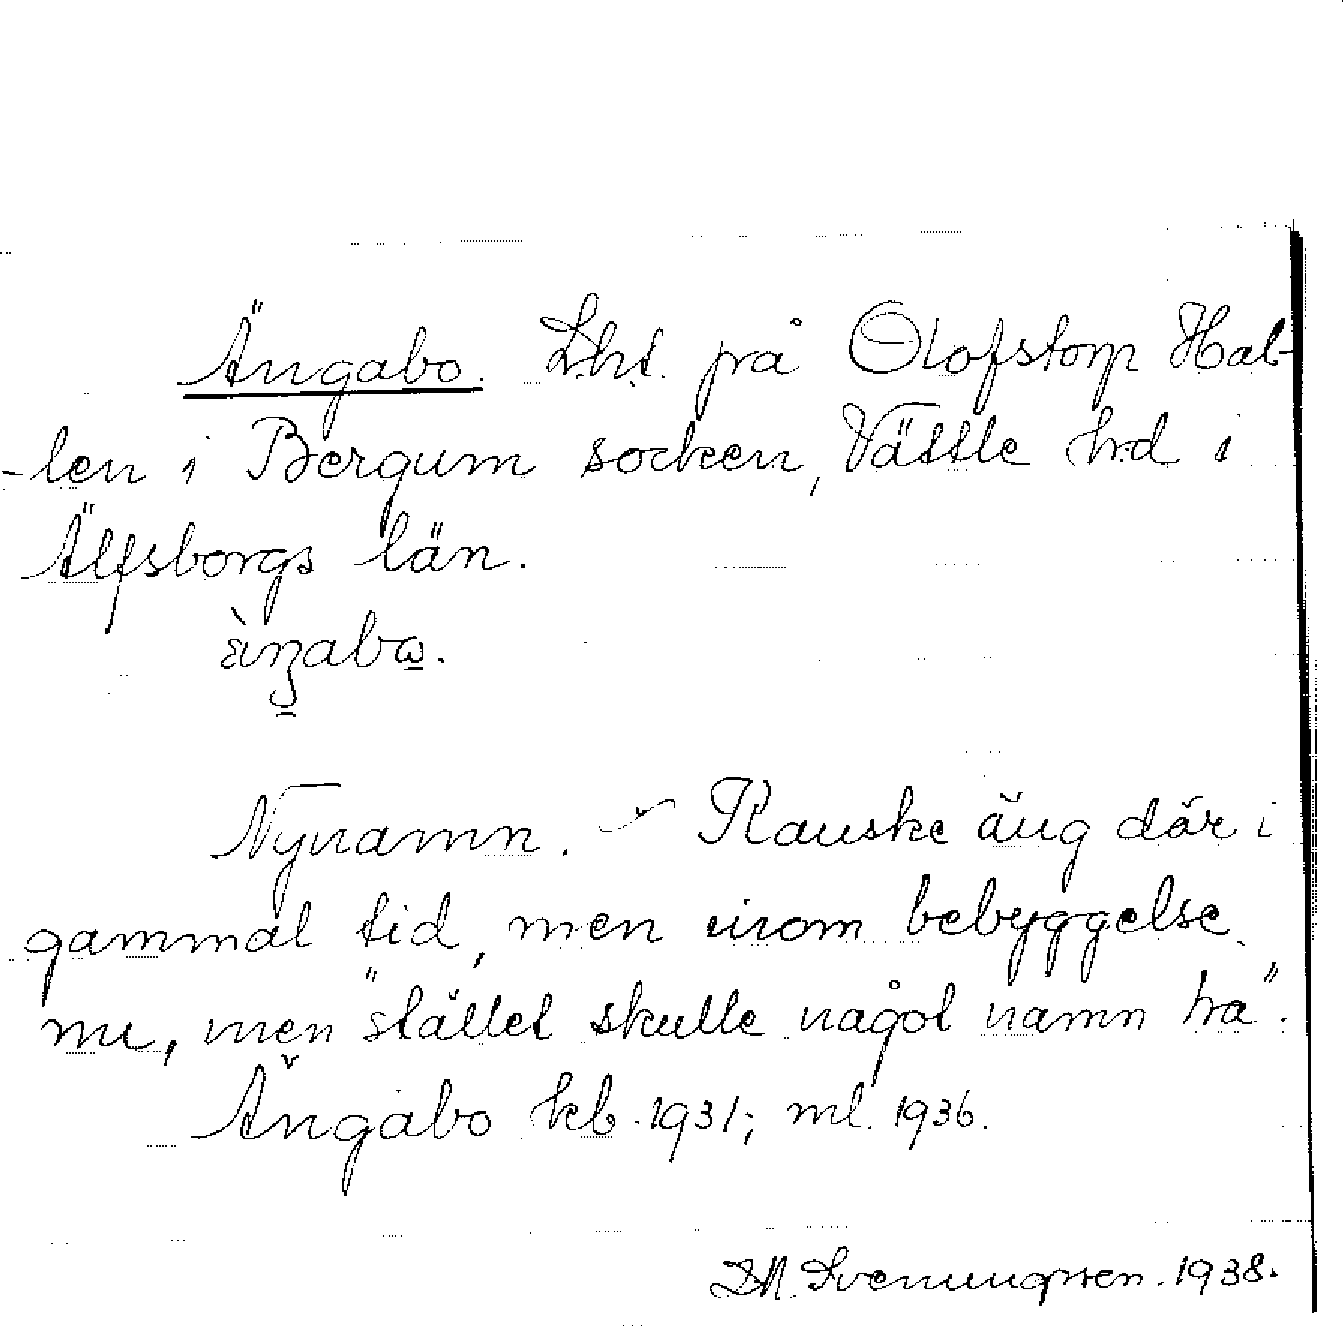 Ängabo. Lht. på Olofstorp Hal-
-len i Bergum socken, Vättle hd i
Älfsborgs län.
Nynamn. Kanske äng där i
gammal tid, men inom bebyggelse
nu, men "stället skulle något namn ha".
Ängabo kb. 1931; ml. 1936.
Svenungsson. 1938.